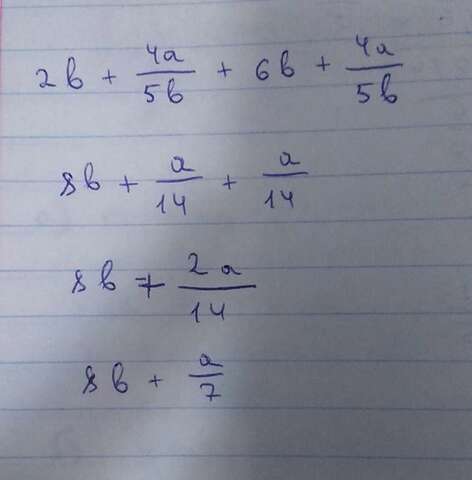 2b + 4a/5b + 6b + 4a/5b
8b + a/14 + a/14
8b + 2a/14
8b + a/7